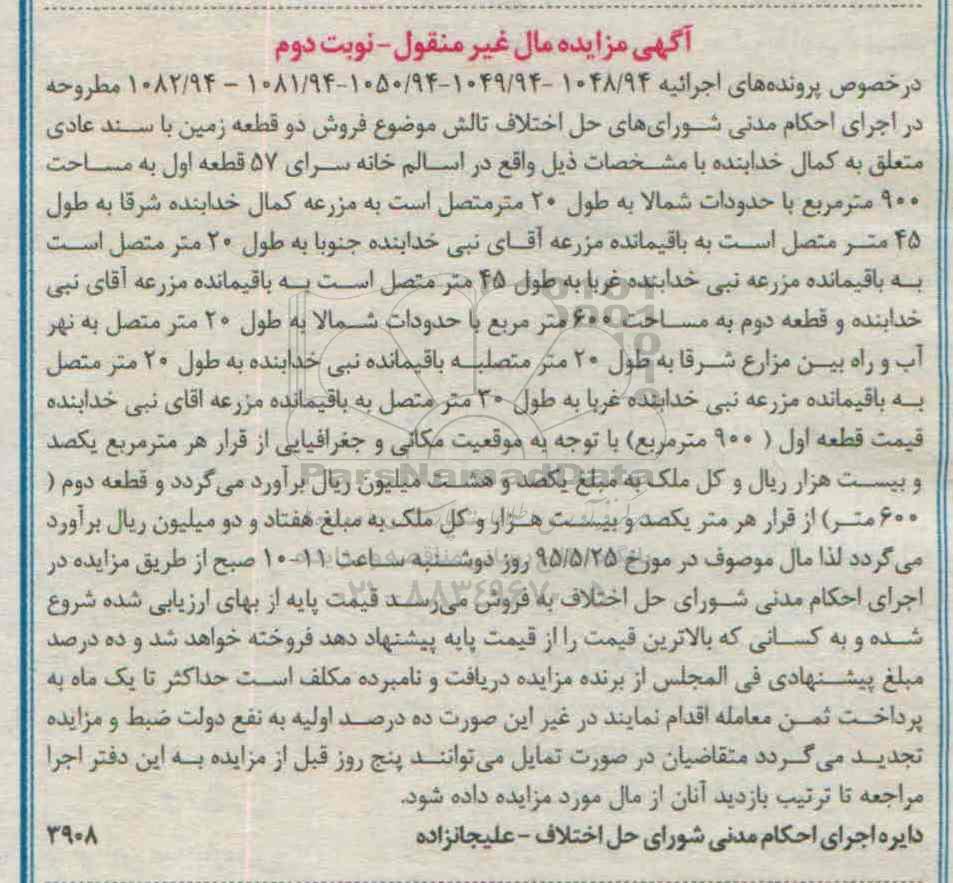 آگهی مزایده مال غیر منقول - نوبت دوم
درخصوص پرونده‌های اجرائیه ۱۰۴۸/۹۴ -۱۰۴۹/۹۴-۱۰۵۰/۹۴-۱۰۸۱/۹۴ – ۱۰۸۲/۹۴ مطروحه
در اجرای احکام مدنی شورای‌های حل اختلاف تالش موضوع فروش دو قطعه زمین با سند عادی
متعلق به کمال خدابنده با مشخصات ذیل واقع در اسالم خانه سرای ۵۷ قطعه اول به مساحت
۹۰۰ مترمربع با حدودات شمالا به طول ۲۰ مترمتصل است به مزرعه کمال خدابنده شرقا به طول
۴۵ متر متصل است به باقیمانده مزرعه آقای نبی خدابنده جنوبا به طول ۲۰ متر متصل است
به باقیمانده مزرعه نبی خدابنده غربا به طول ۴۵ متر متصل است به باقیمانده مزرعه آقای نبی
خدابنده و قطعه دوم به مساحت ۶۰۰ متر مربع با حدودات شمالا به طول ۲۰ متر متصل به نهر
آب و راه بین مزارع شرقا به طول ۲۰ متر متصلبه باقیمانده نبی خدابنده به طول ۲۰ متر متصل
به باقیمانده مزرعه نبی خدابنده غربا به طول ۳۰ متر متصل به باقیمانده مزرعه اقای نبی خدابنده
قیمت قطعه اول ( ۹۰۰ مترمربع) با توجه به موقعیت مکانی و جغرافیایی از قرار هر مترمربع یکصد
و بیست هزار ریال و کل ملک به مبلغ یکصد و هشت میلیون ریال برآورد می‌گردد و قطعه دوم (
۶۰۰ متر) از قرار هر متر یکصد و بیست هزار و کل ملک به مبلغ هفتاد و دو میلیون ریال برآورد
می‌گردد لذا مال موصوف در مورخ ۹۵/۵/۲۵ روز دوشنبه ساعت ۱۱-۱۰ صبح از طریق مزایده در
اجرای احکام مدنی شورای حل اختلاف به فروش می‌رسد قیمت پایه از بهای ارزیابی شده شروع
شده و به کسانی که بالاترین قیمت را از قیمت پایه پیشنهاد دهد فروخته خواهد شد و ده درصد
مبلغ پیشنهادی فی المجلس از برنده مزایده دریافت و نامبرده مکلف است حداکثر تا یک ماه به
پرداخت ثمن معامله اقدام نمایند در غیر این صورت ده درصد اولیه به نفع دولت ضبط و مزایده
تجدید می‌گردد متقاضیان در صورت تمایل می‌توانند پنج روز قبل از مزایده به این دفتر اجرا
مراجعه تا ترتیب بازدید آنان از مال مورد مزایده داده شود.
دایره اجرای احکام مدنی شورای حل اختلاف - علیجانزاده ۳۹۰۸
ParsNamadData